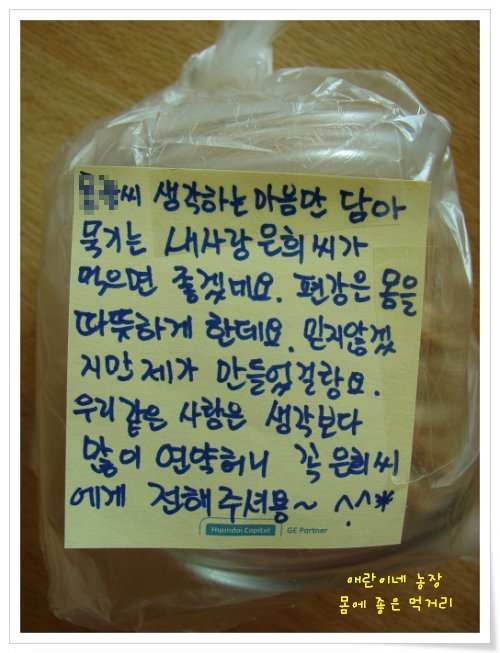 씨 생각하는 마음만 담아
묵기는 내사랑 은희씨가
먹으면 좋겠네요. 편강은 몸을
따뜻하게 한데요. 믿지않겠
지만 제가 만들었걸랑요.
우리같은 사랑은 생각보다
많이 연약허니 꼭 은희씨
에게 전해주셔용~ ^.^*
Hyundai Capital | GE Partner
애란이네 농장
몸에 좋은 먹거리